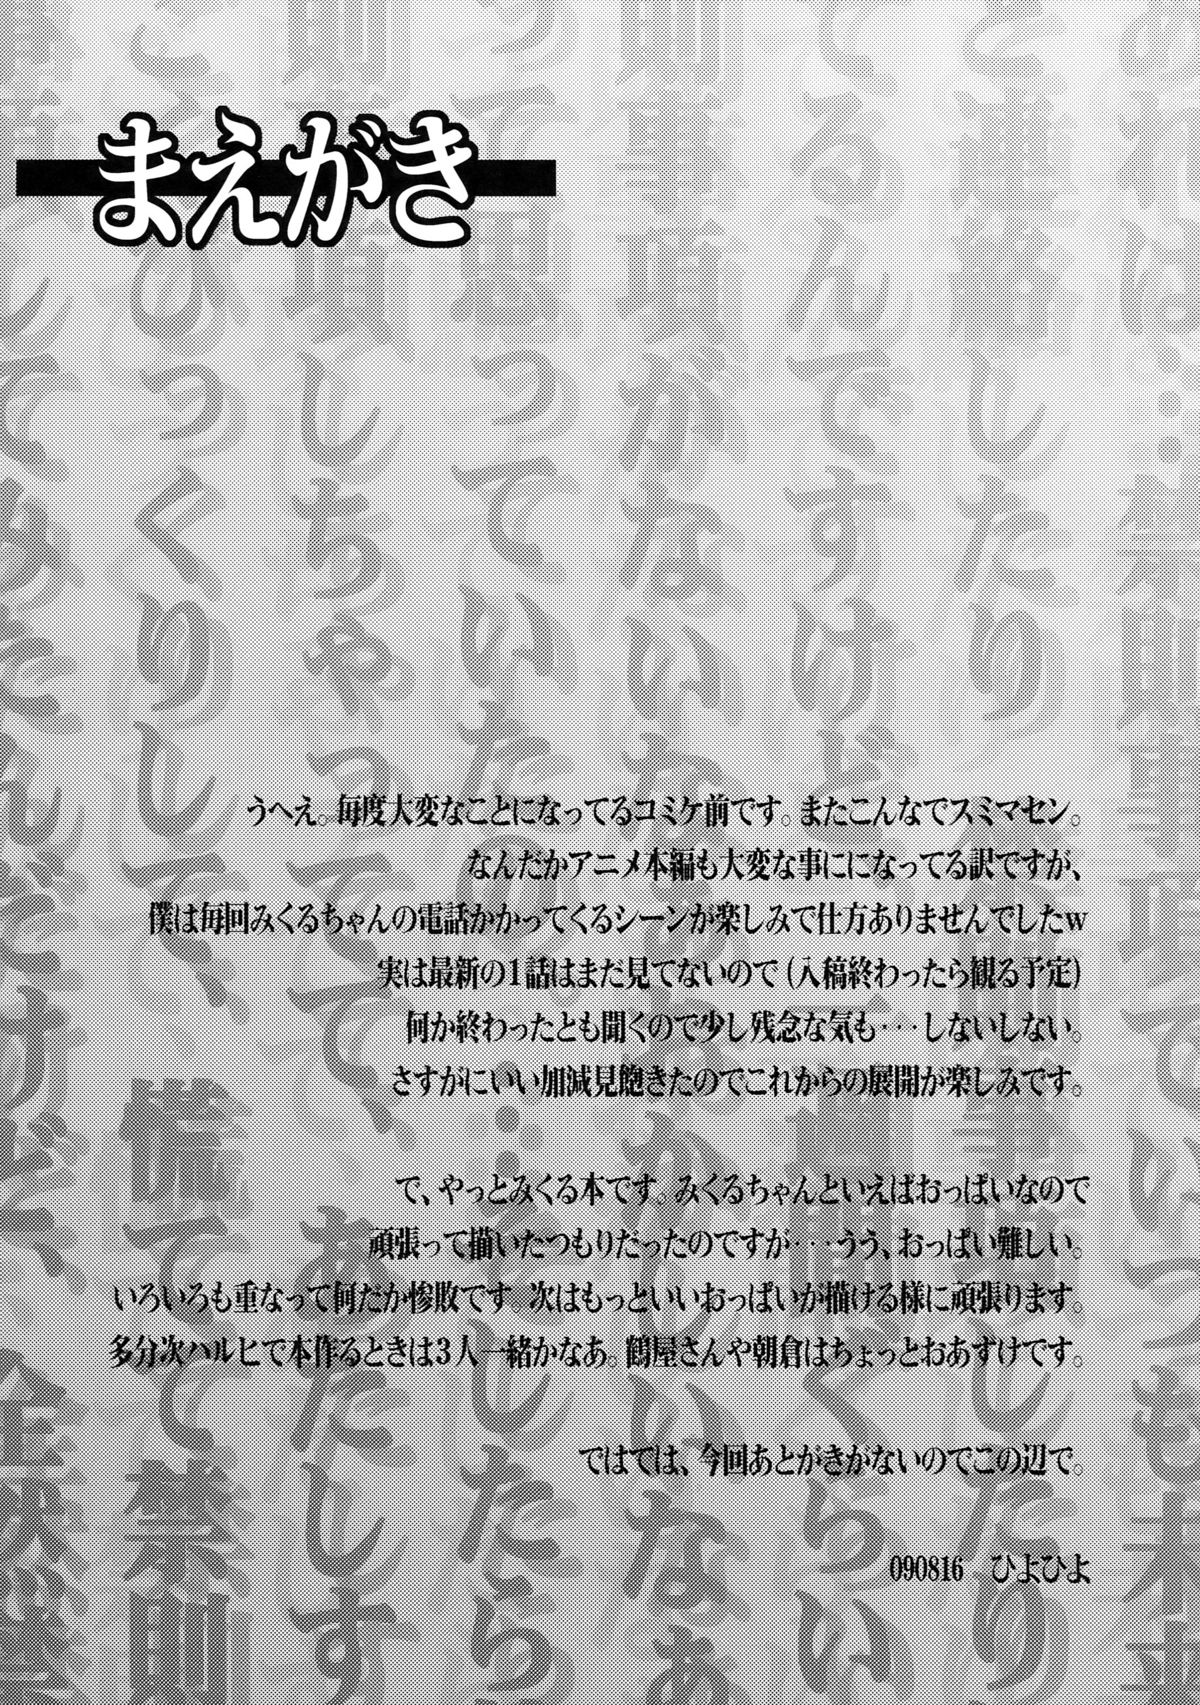 まえがき
うへえ。毎度大変なことになってるコミケ前です。またこんなでスミマセン。
なんだかアニメ本編も大変な事にになってる訳ですが、
僕は毎回みくるちゃんの電話かかってくるシーンが楽しみで仕方ありませんでしたw
実は最新の1話はまだ見てないので(入稿終わったら観る予定)
何か終わったとも聞くので少し残念な気も･･･しないしない。
さすがにいい加減見飽きたのでこれからの展開が楽しみです。
で、やっとみくる本です。みくるちゃんといえばおっぱいなので
頑張って描いたつもりだったのですが･･･うう、おっぱい難しい。
いろいろも重なって何だか惨敗です。次はもっといいおっぱいが描ける様に頑張ります。
多分次ハルヒで本作るときは3人一緒かなあ。鶴屋さんや朝倉はちょっとおあずけです。
ではでは、今回あとがきがないのでこの辺で。
090816　ひよひよ